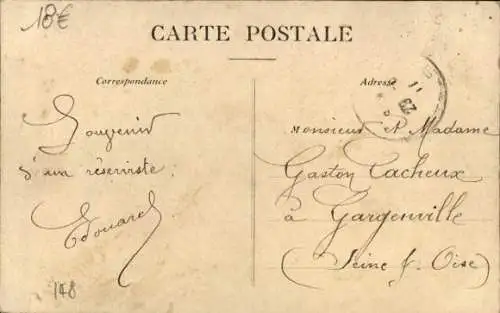 18€
CARTE POSTALE
Correspondance
Souvenir
d'un réserviste
Edouard
148
Adresse
Monsieur et Madame
Gaston Cacheux
à Gargenville
(Seine & Oise)